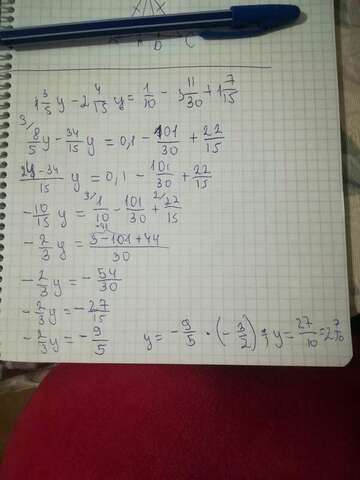 A D C
1 3/5 y - 2 4/15 y = 1/10 - 3 11/30 + 1 7/15
8/5 y - 34/15 y = 0,1 - 101/30 + 22/15
24-34/15 y = 0,1 - 101/30 + 22/15
-10/15 y = 1/10 - 101/30 + 22/15
-2/3 y = 3-101+44/30
-2/3 y = -54/30
-2/3 y = -27/15
-2/3 y = -9/5 y = -9/5 · (-3/2) y = 27/10 = 2 7/10